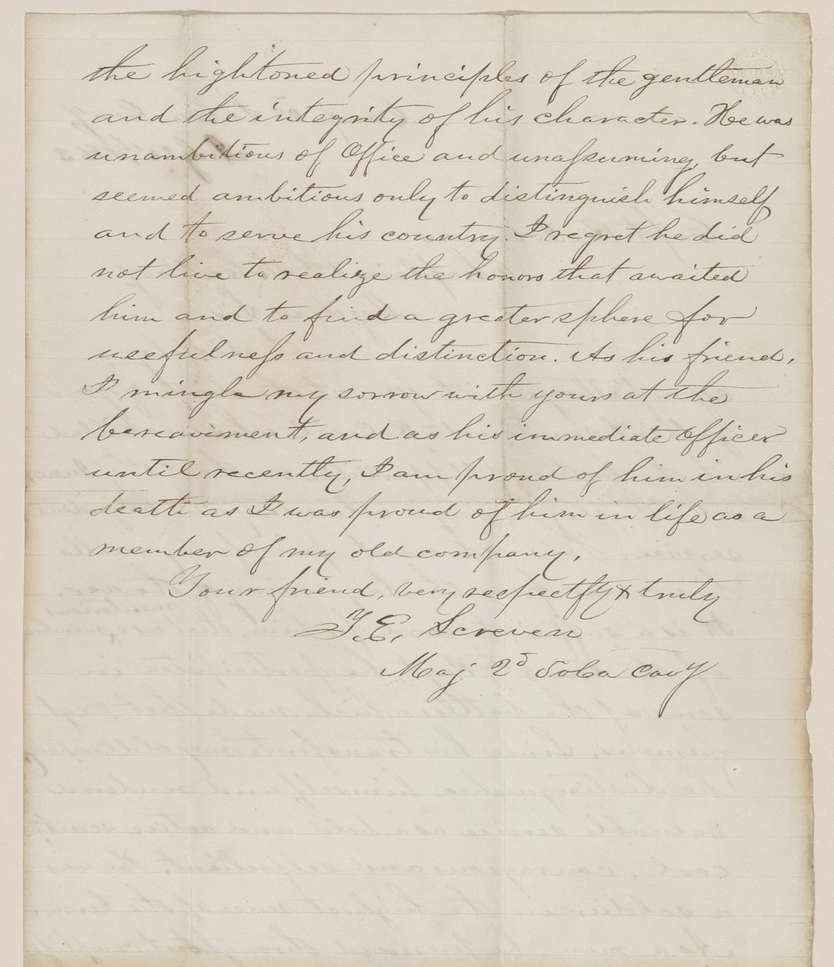 the hightoned principles of the gentleman
and the integrity of his character. He was
unambitious of Office and unassuming, but
seemed ambitious only to distinguish himself
and to serve his country. I regret he did
not live to realize the honors that awaited
him and to find a greater sphere for
usefulness and distinction. As his friend,
I mingle my sorrow with yours at the
bereavement, and as his immediate Officer
until recently, I am proud of him in his
death as I was proud of him in life as a
member of my old company,
Your friend, very respectfly & truly
T. E. Screven
Maj 2d So Ca Cavy